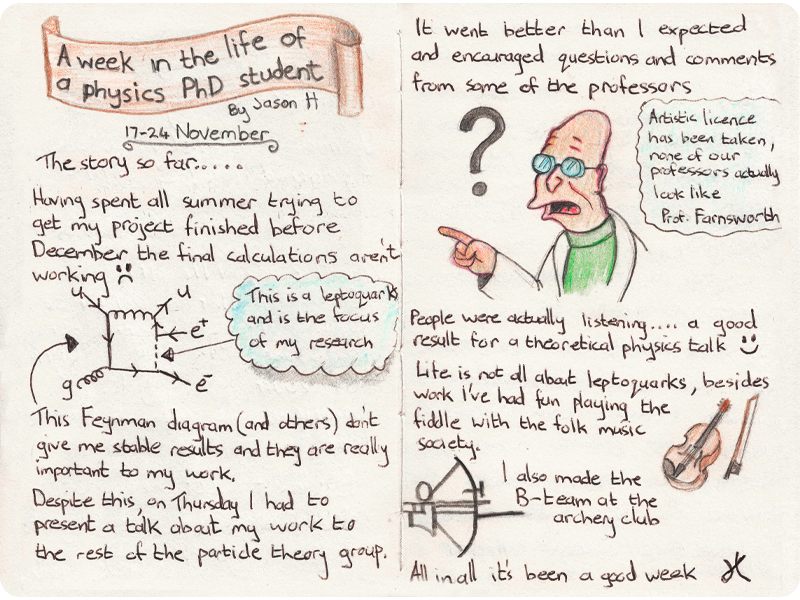 A week in the life of
a physics PhD student
By Jason H
17-24 November
The story so far.....
Having spent all summer trying to
get my project finished before
December the final calculations aren't
working
u
u
e+
e-
g
This is a leptoquark
and is the focus
of my research
This Feynman diagram (and others) don't
give me stable results and they are really
important to my work.
Despite this, on Thursday I had to
present a talk about my work to
the rest of the particle theory group.
It went better than I expected
and encouraged questions and comments
from some of the professors
?
Artistic licence
has been taken,
none of our
professors actually
look like
Prof. Farnsworth
People were actually listening.... a good
result for a theoretical physics talk
Life is not all about leptoquarks, besides
work I've had fun playing the
fiddle with the folk music
society.
I also made the
B-team at the
archery club
All in all it's been a good week